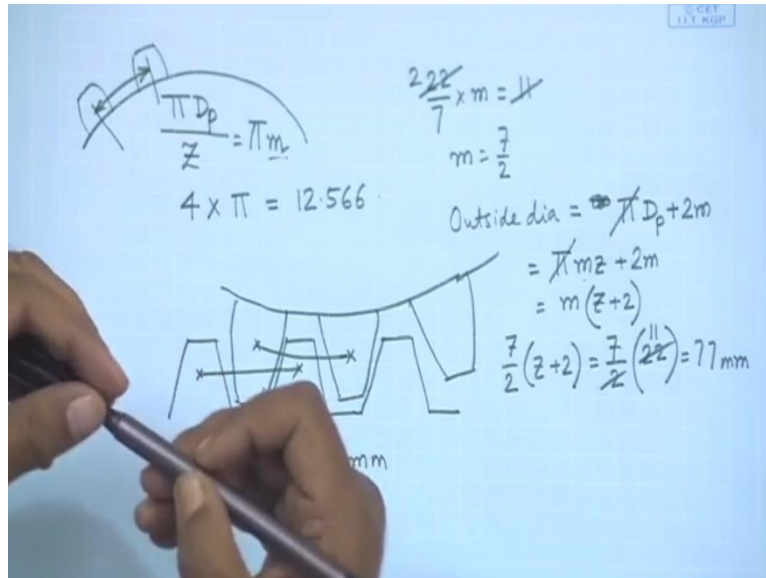 © CET
I.I.T. KGP
πDₚ/Z = πm
4 × π = 12.566
2 22/7 × m = 11
m = 7/2
Outside dia = πDₚ + 2m
= πmz + 2m
= m(z+2)
7/2 (z+2) = 7/2 (11 22) = 77 mm
mm